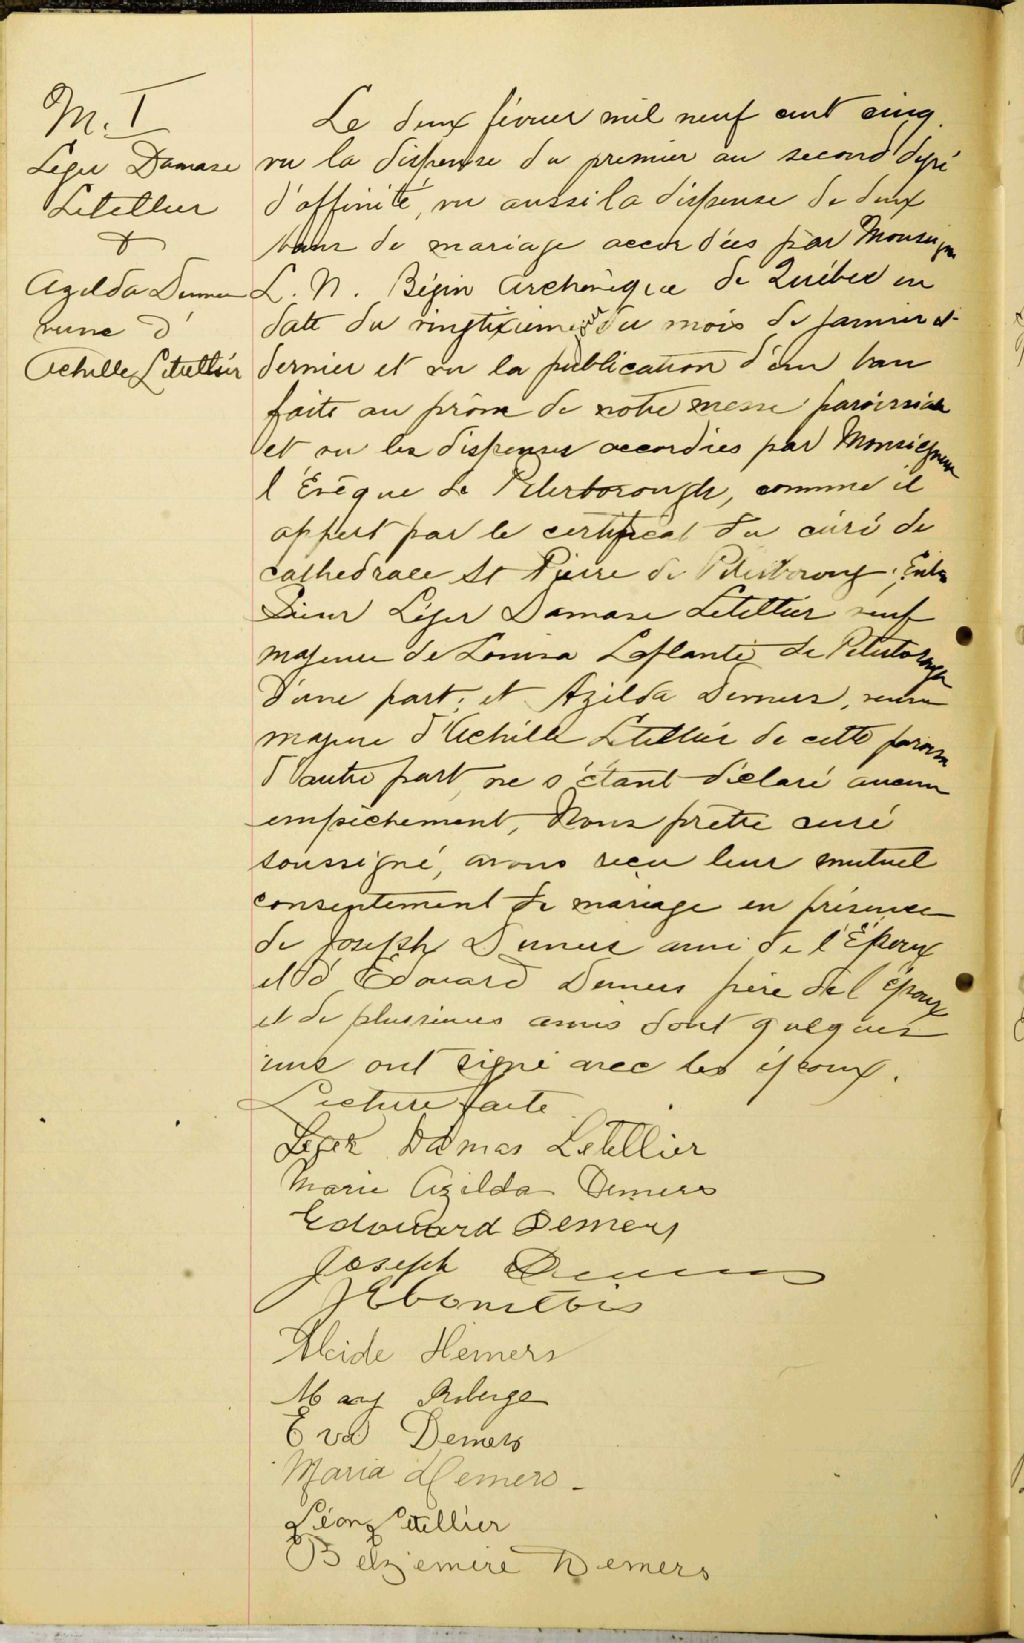 M. I
Léger Damase
Letellier
&
Azilda Demers
veuve d'
Achille Letellier
Le deux février mil neuf cent cinq.
vu la dispense du premier au second degré
d'affinité, vu aussi la dispense de deux
bans de mariage accordées par Monseigneur
L. N. Bégin Archevêque de Québec en
date du vingtixième jour du mois de janvier
dernier et vu la publication d'un ban
faite au prône de notre messe paroissiale
et vu les dispenses accordées par Monseigneur
l'Evêque de Peterborough, comme il
appert par le certificat du curé de
cathedrale St Pierre de Peterboroug; Entre
Sieur Léger Damase Letellier veuf
majeur de Louisa Laflante de Peterborough
d'une part; et Azilda Demers, veuve
majeure d'Achille Letellier de cette paroisse
d'autre part, ne s'étant déclaré aucun
empêchement, Nous prêtre curé
soussigné, avons reçu leur mutuel
consentement de mariage en présence
de Joseph Demers ami de l'Époux
et d'Édouard Demers père de l'épouse
et de plusieurs amis dont quelques
uns ont signé avec les époux.
Lecture faite
Leger Damas Letellier
Marie Azilda Demers
Edouard Demers
Joseph Demers
Alcide Demers
Mary Roberge
Eva Demers
Maria Demers
Léon Letellier
Belzemire Demers